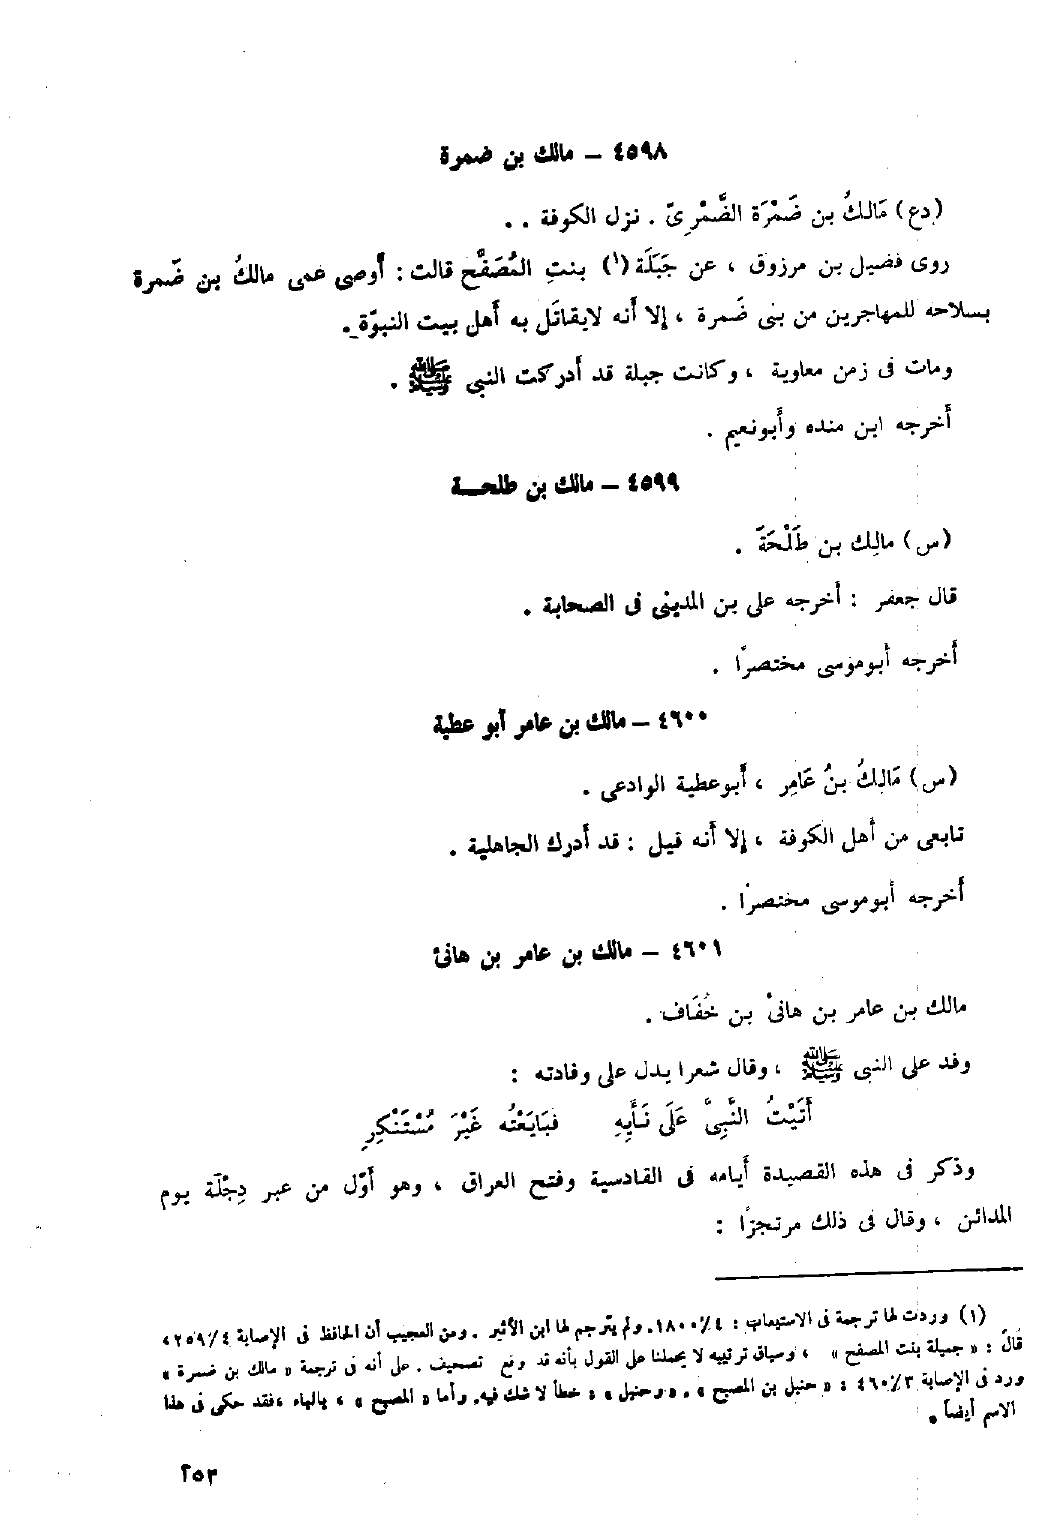 ٤٥٩٨ – مالك بن ضمرة
(دع) مَالكُ بن ضَمْرَة الضَّمْرِىّ . نزل الكوفة . .
روى فضيل بن مرزوق ، عن جَبَلَة (١) بنتِ المُصَفَّح قالت : أوصى عمى مالكُ بن ضَمرة
بسلاحه للمهاجرين من بنى ضَمرة ، إلا أنه لايقاتَل به أهل بيت النبوّة .
ومات فى زمن معاوية ، وكانت جبلة قد أدركت النبى ﷺ .
أخرجه ابن منده وأبونعيم .
٤٥٩٩ – مالك بن طلحـة
(س) مالك بن طَلْحَةَ .
قال جعفر : أخرجه على بن المدينى فى الصحابة .
أخرجه أبوموسى مختصرًا .
٤٦٠٠ – مالك بن عامر أبو عطية
(س) مَالِكُ بنُ عَامِر ، أبوعطية الوادعى .
تابعى من أهل الكوفة ، إلا أنه قيل : قد أدرك الجاهلية .
أخرجه أبوموسى مختصرًا .
٤٦٠١ – مالك بن عامر بن هانئ
مالك بن عامر بن هانئ بن خُفَاف .
وفد على النبى ﷺ ، وقال شعرا يدل على وفادته :
أَتَيْتُ النَّبِىَّ عَلَى نَأْيِهِ فَبَايَعْتُه غَيْرَ مُسْتَنْكِرِ
وذكر فى هذه القصيدة أيامه فى القادسية وفتح العراق ، وهو أوّل من عبر دِجْلَة يوم
المدائن ، وقال فى ذلك مرتجزًا :
(١) وردت لها ترجمة فى الاستيعاب : ١٨٠٠/٤. ولم يترجم لها ابن الأثير . ومن العجيب أن الحافظ فى الإصابة ٢٥٩/٤ ،
قال : « جميلة بنت المصفح » ، وسياق ترتيبه لا يحملنا على القول بأنه قد وقع تصحيف . على أنه فى ترجمة « مالك بن ضمرة »
ورد فى الإصابة ٤٦٠/٣ : « حنبل بن المصبح » . « وحنبل » خطأ لا شك فيه. وأما « المصبح » ، بالباء ، فقد حكى فى هذا
الاسم أيضاً .
٢٥٣